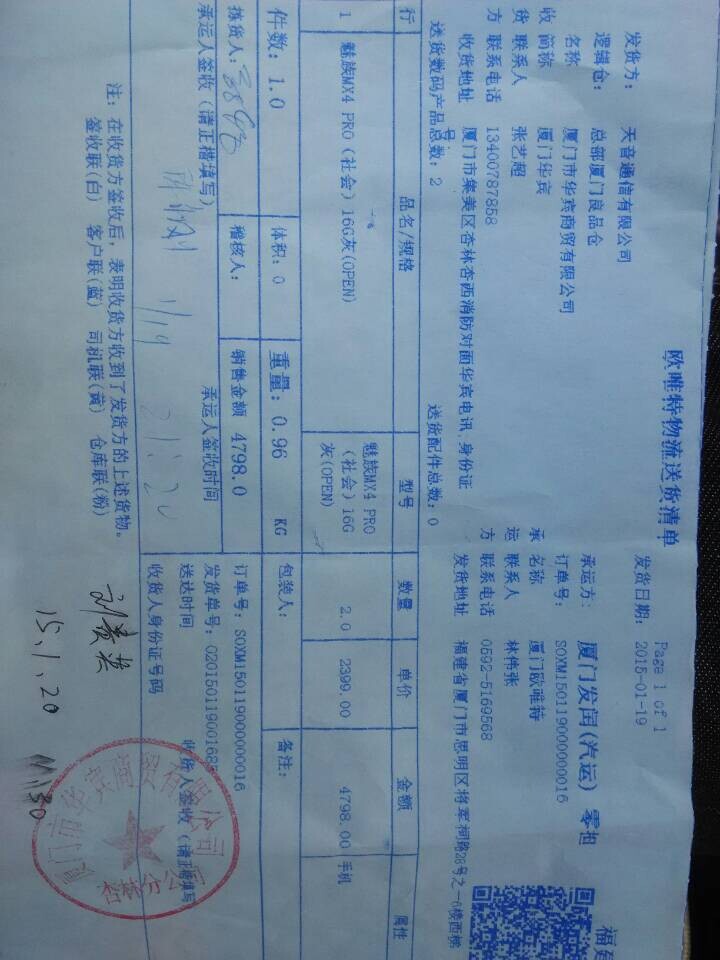 欧唯特物流送货清单
Page 1 of 1
发货日期: 2015-01-19
福建
发货方: 天音通信有限公司
承运方: 厦门发闰(汽运) 零担
逻辑仓: 总部厦门良品仓
订单号: SOXM150119000000016
收货方
名称 厦门市华宾商贸有限公司
简称 厦门华宾
联系人 张艺超
联系电话 13400787858
收货地址 厦门市集美区杏林杏西消防对面华宾电讯,身份证号:
承运方
名称 厦门欧唯特
联系人 林伟张
联系电话 0592-5169568
发货地址 福建省厦门市思明区将军祠路28号之一6楼西梯
送货数码产品总数: 2 送货配件总数: 0
行 品名/规格 型号 数量 单价 金额 属性
1 魅族MX4 PRO (社会) 16G灰(OPEN) 魅族MX4 PRO (社会) 16G灰(OPEN) 2.0 2399.00 4798.00 手机
件数: 1.0 体积: 0 重量: 0.96 KG 包装人: 备注:
拣货人: 稽核人: 销售金额 4798.0 订单号: SOXM150119000000016
承运人签收 (请正楷填写) 承运人签收时间 发货单号: 0201501190016850
1/19 21:20
送达时间 收货人签收 (请正楷填写)
收货人身份证号码
注: 在收货方签收后, 表明收货方收到了发货方的上述货物。
签收联(白) 客户联(蓝) 司机联(黄) 仓库联(粉)
15.1.20 11:30
厦门市华宾商贸有限公司
杏林分公司